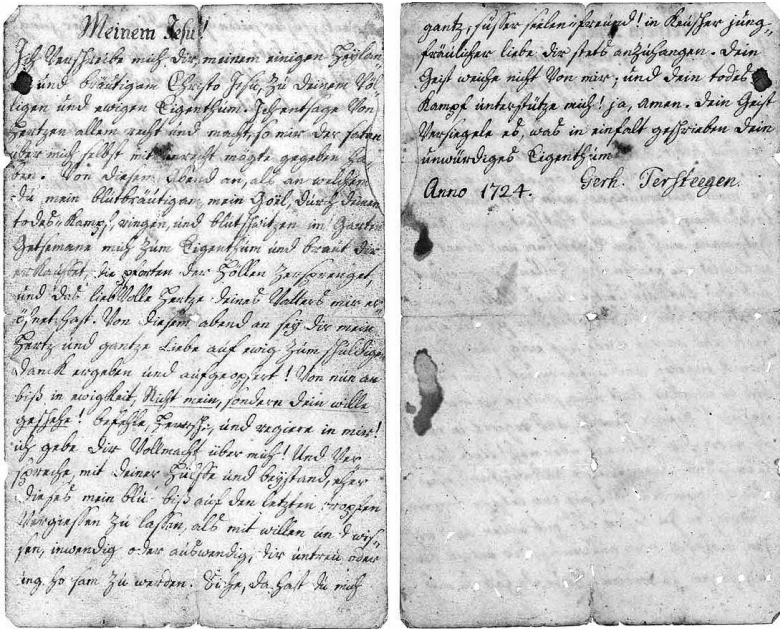 Meinem Jesu!
Ich verschreibe mich dir, meinem einigen Heylan
und bräutigam Christo Jesu, zu deinem Völ
ligen und ewigen Eigenthum. Ich entsage von
Hertzen allem recht und macht, so mir der satan
über mich selbst mit unrecht mögte gegeben ha
ben. Von diesem Abend an, als an welchem
du mein blutbräutigam, mein Goel, durch deinen
todes-Kampf, ringen, und blutschwitzen im Garten
Getsemane mich zum Eigenthum und braut dir
erkauffet, die pforten der Höllen zersprenget,
und das liebVolle Hertze deines Vatters mir er-
öfnet hast. Von diesem abend an sey dir mein
Hertz und gantze Liebe auf ewig zum schuldige
danck ergeben und aufgeopfert! Von nun an
biß in ewigkeit, Nicht mein, sondern dein wille
geschehe! befehle, herrsche, und regiere in mir!
ich gebe dir Vollmacht über mich! Und Ver
spreche, mit deiner Hülffe und beystand, eher
dieses mein blu biß auf den letzten tropfen
Vergiessen zu lassen, als mit willen und wis-
sen, inwendig oder auswendig, dir untreu oder
ungehorsam zu werden. Siehe, da hast du mich
gantz, süsser seelen-freund! in Keuscher jung-
fräulicher liebe dir stets anzuhangen. Dein
Geist weiche nicht von mir; und dein todes
Kampf unterstütze mich! ja, amen. Dein Geist
Versiegele es, was in einfalt geschrieben Dein
unwürdiges Eigenthum
Anno 1724. Gerh. Tersteegen.